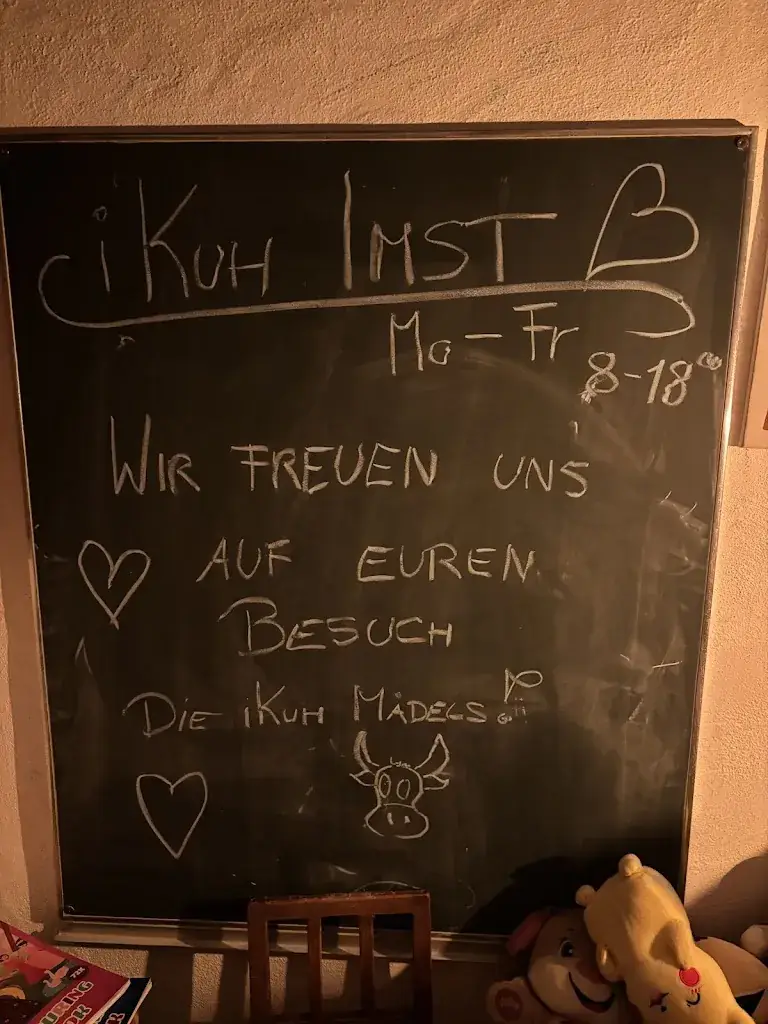 iKuh Imst
Mo-Fr
8-18
Wir freuen uns
auf euren
Besuch
Die iKuh Mädels!
URING
OK